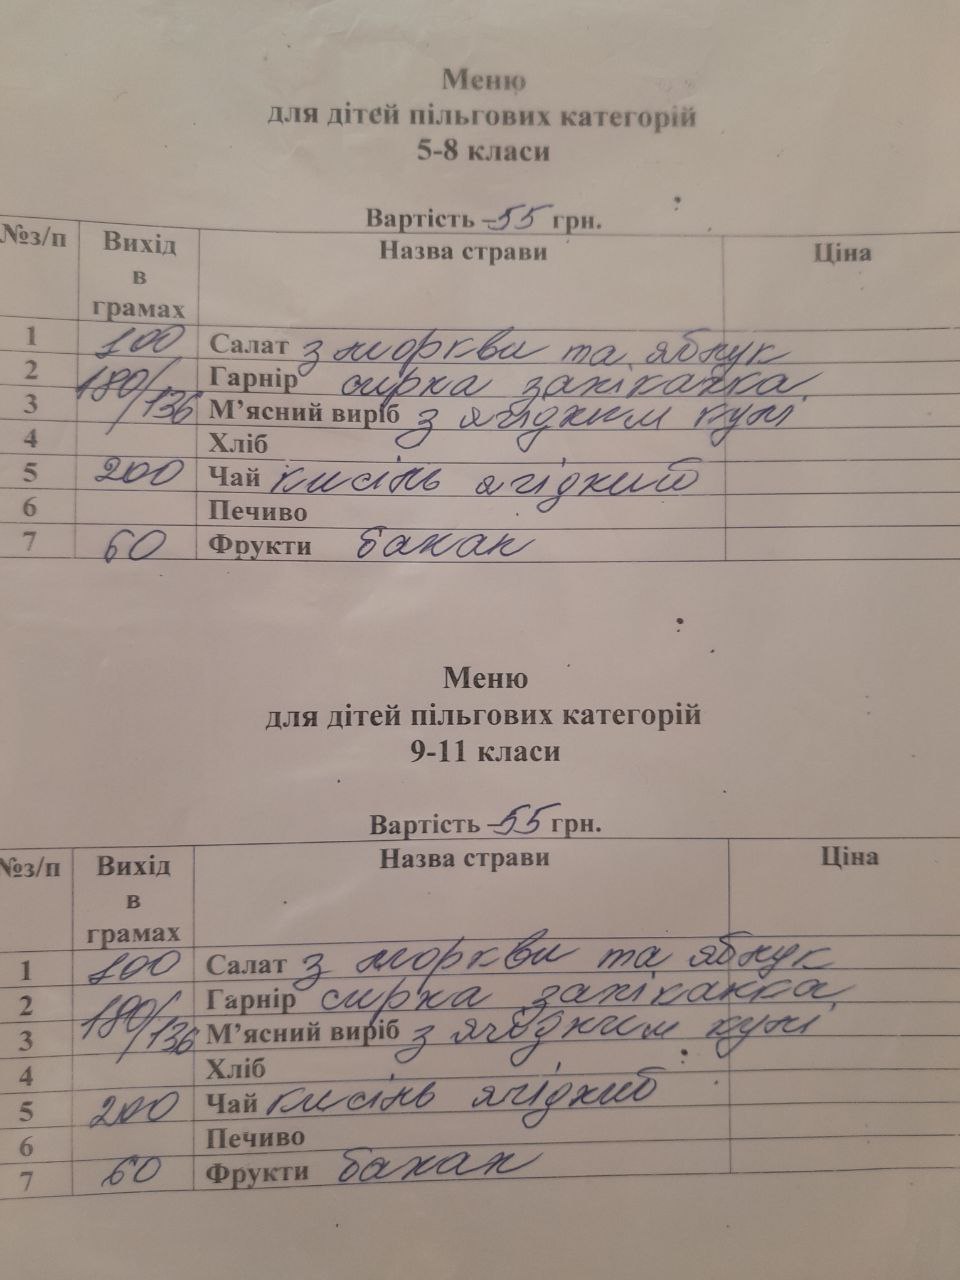 Меню
для дітей пільгових категорій
5-8 класи
Вартість -55 грн.
№з/п Вихід в грамах Назва страви Ціна
1 100 Салат з моркви та яблук
2 180/136 Гарнір сирна запіканка
3 М’ясний виріб з ягідним кулі
4 Хліб
5 200 Чай кисіль ягідний
6 Печиво
7 60 Фрукти банан
Меню
для дітей пільгових категорій
9-11 класи
Вартість -55 грн.
№з/п Вихід в грамах Назва страви Ціна
1 100 Салат з моркви та яблук
2 180/136 Гарнір сирна запіканка
3 М’ясний виріб з ягідним кулі
4 Хліб
5 200 Чай кисіль ягідний
6 Печиво
7 60 Фрукти банан